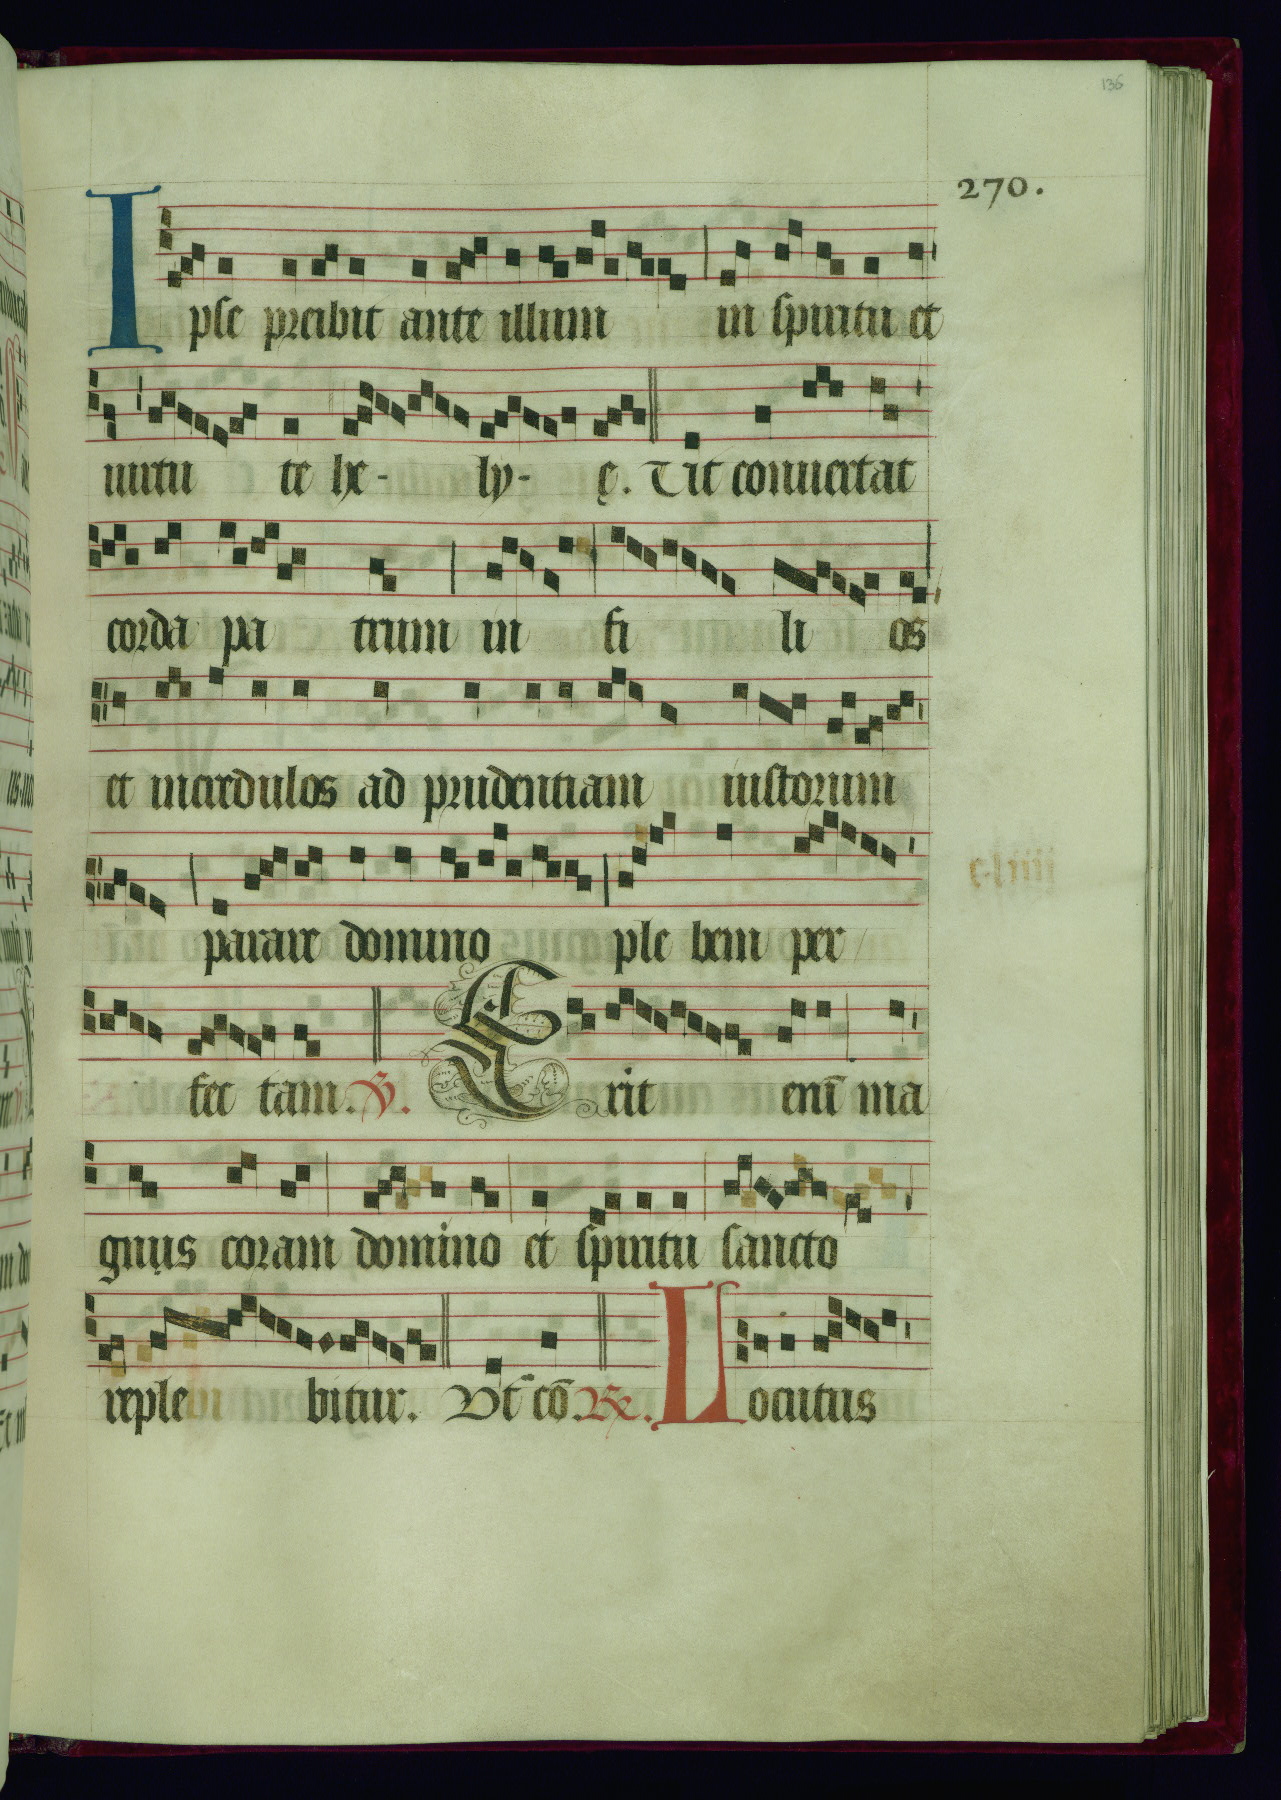 136
270.
Ipse preibit ante illum in spiritu et
uirtu te he- ly- ę. Ut conuertat
corda pa trum in fi li os
et incredulos ad prudentiam iustorum
parare domino ple bem per
fec tam. ℣. Erit eni̅ ma
gnus coram domino et spiritu sancto
reple bitur. Vt co̅ ℟. Locutus